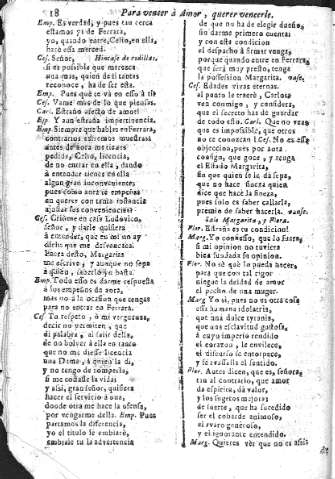 18 Para vencer à Amor, querer vencerle.
Emp. Es verdad, y pues tan cerca
estamos ya de Ferrara,
yo, quando entre, Celio, en ella,
harè essa merced.
Ces. Señor, Hincase de rodillas.
si es possible que merezca
una mas, quien de tantas
reconoce, ha de ser esta.
Emp. Pues què te và en esso à ti?
Ces. Vame mas de lo que piensas.
Carl. Estraño afecto de amor!
Esp. Y aun estraña impertinencia.
Emp. Siempre que hablas en Ferrara,
contrarios estremos muestras
antes de aora me tienes
pedida, Celio, licencia,
de no entrar en ella, dando
à entender tienes en ella
algun gran inconveniente;
pues como aora te empeñas
en querer con tanta
ajustar sus conveniencias?
Ces. Criéme en casa Ludovico,
señor, y darle quisiera
à entender, que en mi no ay
dicha que me desvanezca.
Fuera desto, Margarita
me escrive, y aunque no sepa
à quien, saberlo yo basta.
Emp. Todo esso es darme respuesta
à los empeños de aora,
mas no à la ocasion que tengas
para no entrar en Ferrara.
Ces. Tu respeto, ò mi verguenza,
decir no permiten, que
di palabra, al salir della,
de no bolver à ella en tanto
que no me diesse licencia
una Dama, à quien la di,
y no tengo de romperla,
si me costasse la vida
y assi, gran señor, quisiera
hacer el servicio à una,
donde otra me hace la ofensa,
por vengarme della. Emp. Pues
partamos la diferencia,
yo el titulo le embiarè,
embiale tu la advertencia
de que no ha de elegir dueño,
sin darme primero cuenta:
y con esta condicion
el despacho à firmar venga,
porque quando entre en Ferrara,
que serà muy presto, tenga
la possession Margarita. vase.
Ces. Edades vivas eternas.
al punto le traerè, Carlos
ven conmigo, y considera,
que el secreto has de guardar
de todo esto. Carl. Que no vean
que es impossible, que otros
no te conozcan? Ces. No es essa
objeccion, pues por aora
consigo, que goce, y tenga
el Estado Margarita,
sin que quien se le dà sepa,
que no hace fineza quien
dice que hace la fineza,
pues solo es saber callarla,
premio de saber hacerla. vanse.
Sale Margarita, y Flora.
Flor. Estraña es tu condicion!
Marg. Yo confiesso, que lo fuera,
si mi opinion no tuviera
bien fundada su opinion.
Flor. No sè què lo pueda hacer,
para que con tal rigor
niegue la deidad de amor
el pecho de una muger.
Marg. Yo sì, pues no es otra cosa
essa humana idolatria,
que una dulce tyrania,
que una esclavitud gustosa,
à cuyo imperio rendido
el corazon, le envilece,
el discurso le entorpece,
y le avassalla el sentido.
Flor. Antes dicen, que es, señora,
tan al contrario, que amor
da espiritu, dà valor,
y los sugetos mejora
de suerte, que ha sucedido
ser el cobarde animoso,
el avaro generoso,
y el ignorante entendido.
Marg. Quieres ver que no es assi?